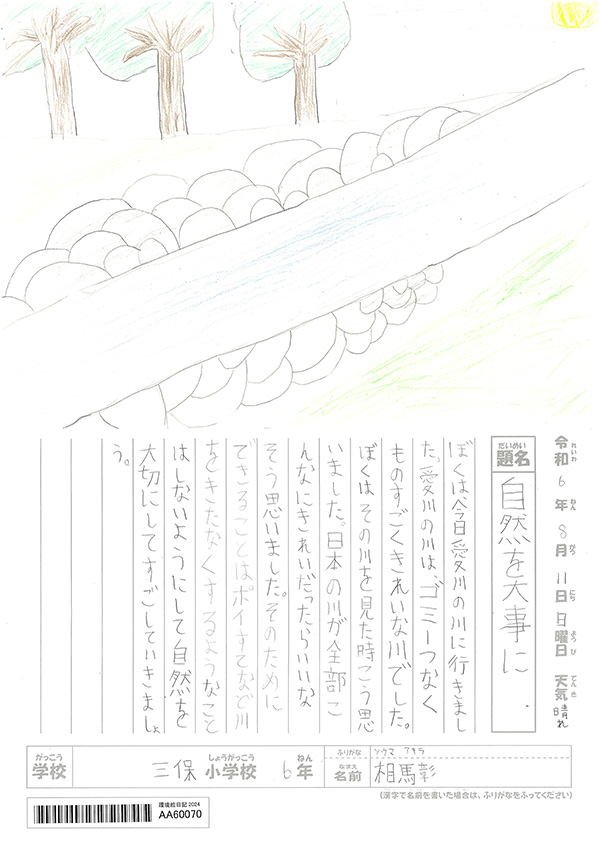 令和6年8月11日日曜日 天気晴れ
れいわ ねん がつ にち ようび てんき
だいめい
題名 自然を大事に.
ぼくは今日愛川の川に行きまし
た。愛川の川は、ゴミ一つなく
ものすごくきれいな川でした。
ぼくはその川を見た時こう思
いました。日本の川が全部こ
んなにきれいだったらいいな
そう思いました。そのために
できることはポイすてなど川
をきたなくするようなこと
はしないようにして自然を
大切にしてすごしていきましょ
う。
がっこう しょうがっこう ねん
学校 三保小学校 6年
ふりがな ソウマ アキラ
なまえ
名前 相馬彰
(漢字で名前を書いた場合は、ふりがなをふってください)
環境絵日記2024
AA60070